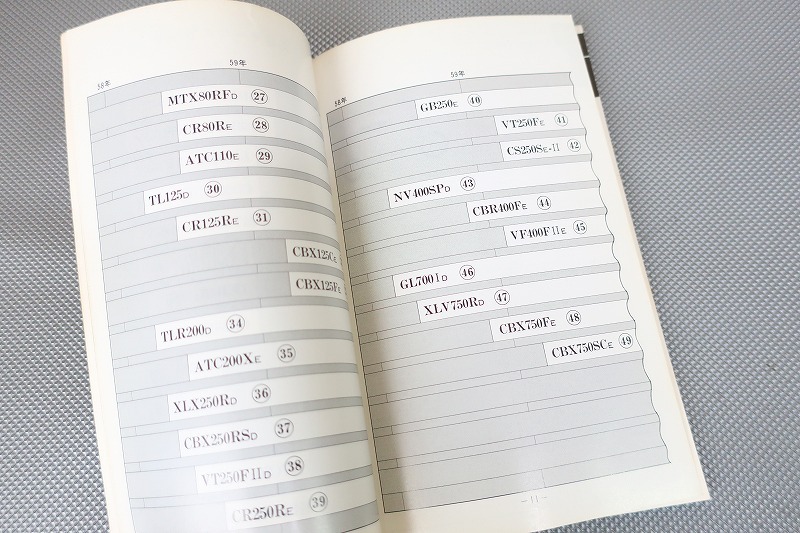 58年
59年
MTX80RFD ㉗
CR80RE ㉘
ATC110E ㉙
TL125D ㉚
CR125RE ㉛
CBX125CE
CBX125FE
TLR200D ㉞
ATC200XE ㉟
XLX250RD ㊱
CBX250RSD ㊲
VT250FIID ㊳
CR250RE ㊴
58年
59年
GB250E ㊵
VT250FE ㊶
CS250SE-II ㊷
NV400SPD ㊸
CBR400FE ㊹
VF400FIIE ㊺
GL700ID ㊻
XLV750RD ㊼
CBX750FE ㊽
CBX750SCE ㊾
-11-